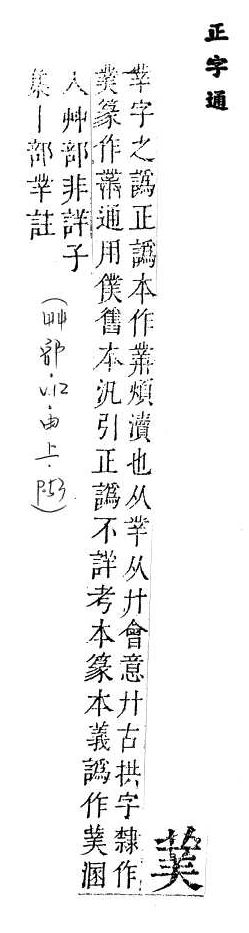 正字通
菐
丵字之譌正譌本作菐煩瀆也从丵从廾會意廾古拱字隸作
菐篆作菐通用僕舊本汎引正譌不詳考本篆本義譌作菐溷
入艸部非詳子
集丨部丵註
(艸部.v.12.由上.P.53)